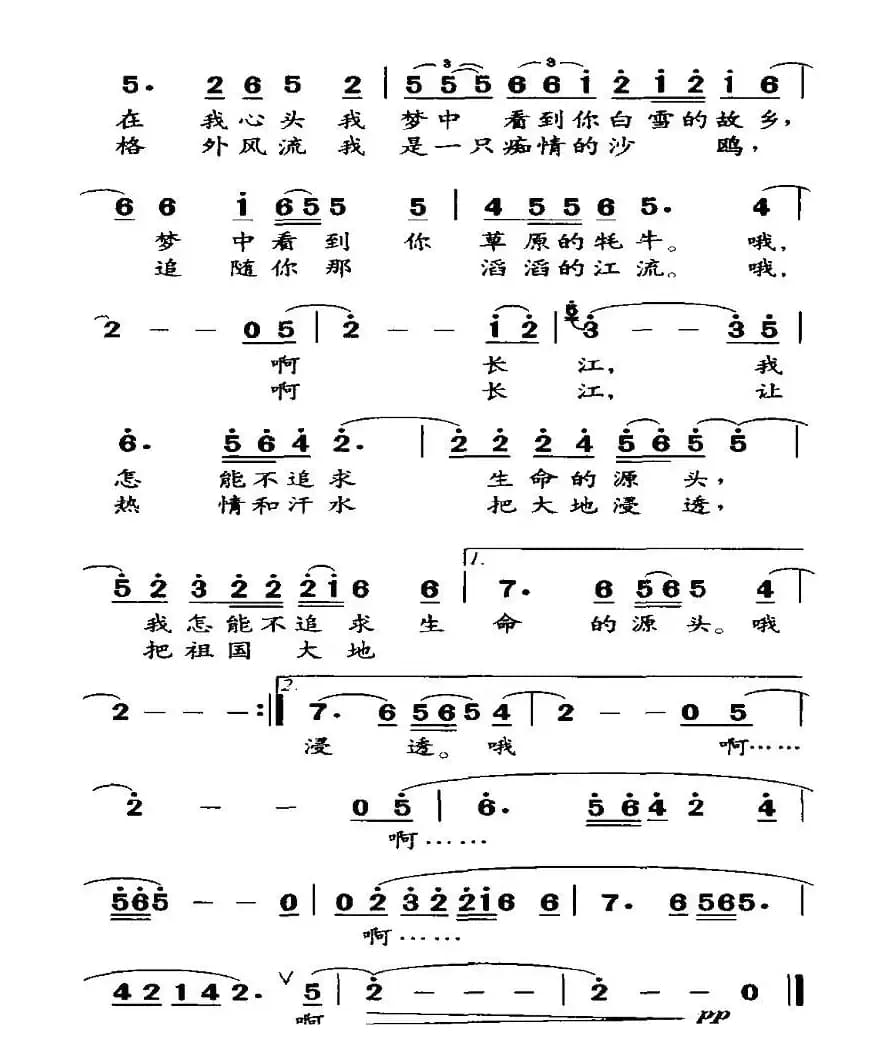 5. 2 6 5 2 | 5 5 5 6 6 1 2 1 2 1 6 |
在 我 心 头 我 梦 中 看 到 你 白 雪 的 故 乡，
格 外 风 流 我 是 一 只 痴 情 的 沙 鸥，
6 6 1 6 5 5 5 | 4 5 5 6 5. 4 |
梦 中 看 到 你 草 原 的 牦 牛。 哦，
追 随 你 那 滔 滔 的 江 流。 哦，
2 - - 0 5 | 2 - - 1 2 | 5 3 - - 3 5 |
啊 长 江， 我
啊 长 江， 让
6. 5 6 4 2. | 2 2 2 4 5 6 5 5 |
怎 能 不 追 求 生 命 的 源 头，
热 情 和 汗 水 把 大 地 浸 透，
1.
5 2 3 2 2 2 1 6 6 | 7. 6 5 6 5 4 |
我 怎 能 不 追 求 生 命 的 源 头。 哦
把 祖 国 大 地
2.
2 - - - :| 7. 6 5 6 5 4 | 2 - - 0 5 |
浸 透。 哦 啊……
2 - - 0 5 | 6. 5 6 4 2 4 |
啊……
5 6 5 - - 0 | 0 2 3 2 2 1 6 6 | 7. 6 5 6 5. |
啊……
4 2 1 4 2. ∨ 5 | 2 - - - | 2 - - 0 ‖
啊 pp